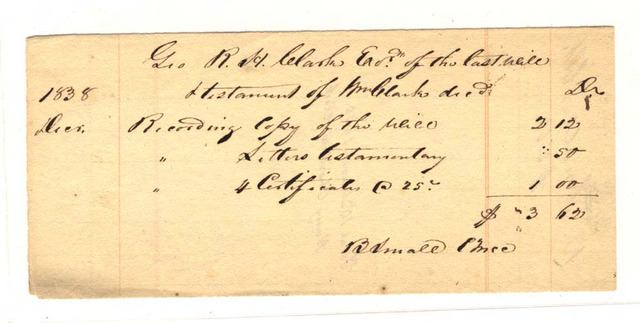 Geo R. H. Clark Exor. of the last will
1838 & testament of Wm Clark decd. Dr
Decr. Recording Copy of the Will 2 12
" Letters testamentary " 50
" 4 Certificates @ 25c 1 00
$ 3 62
B Small